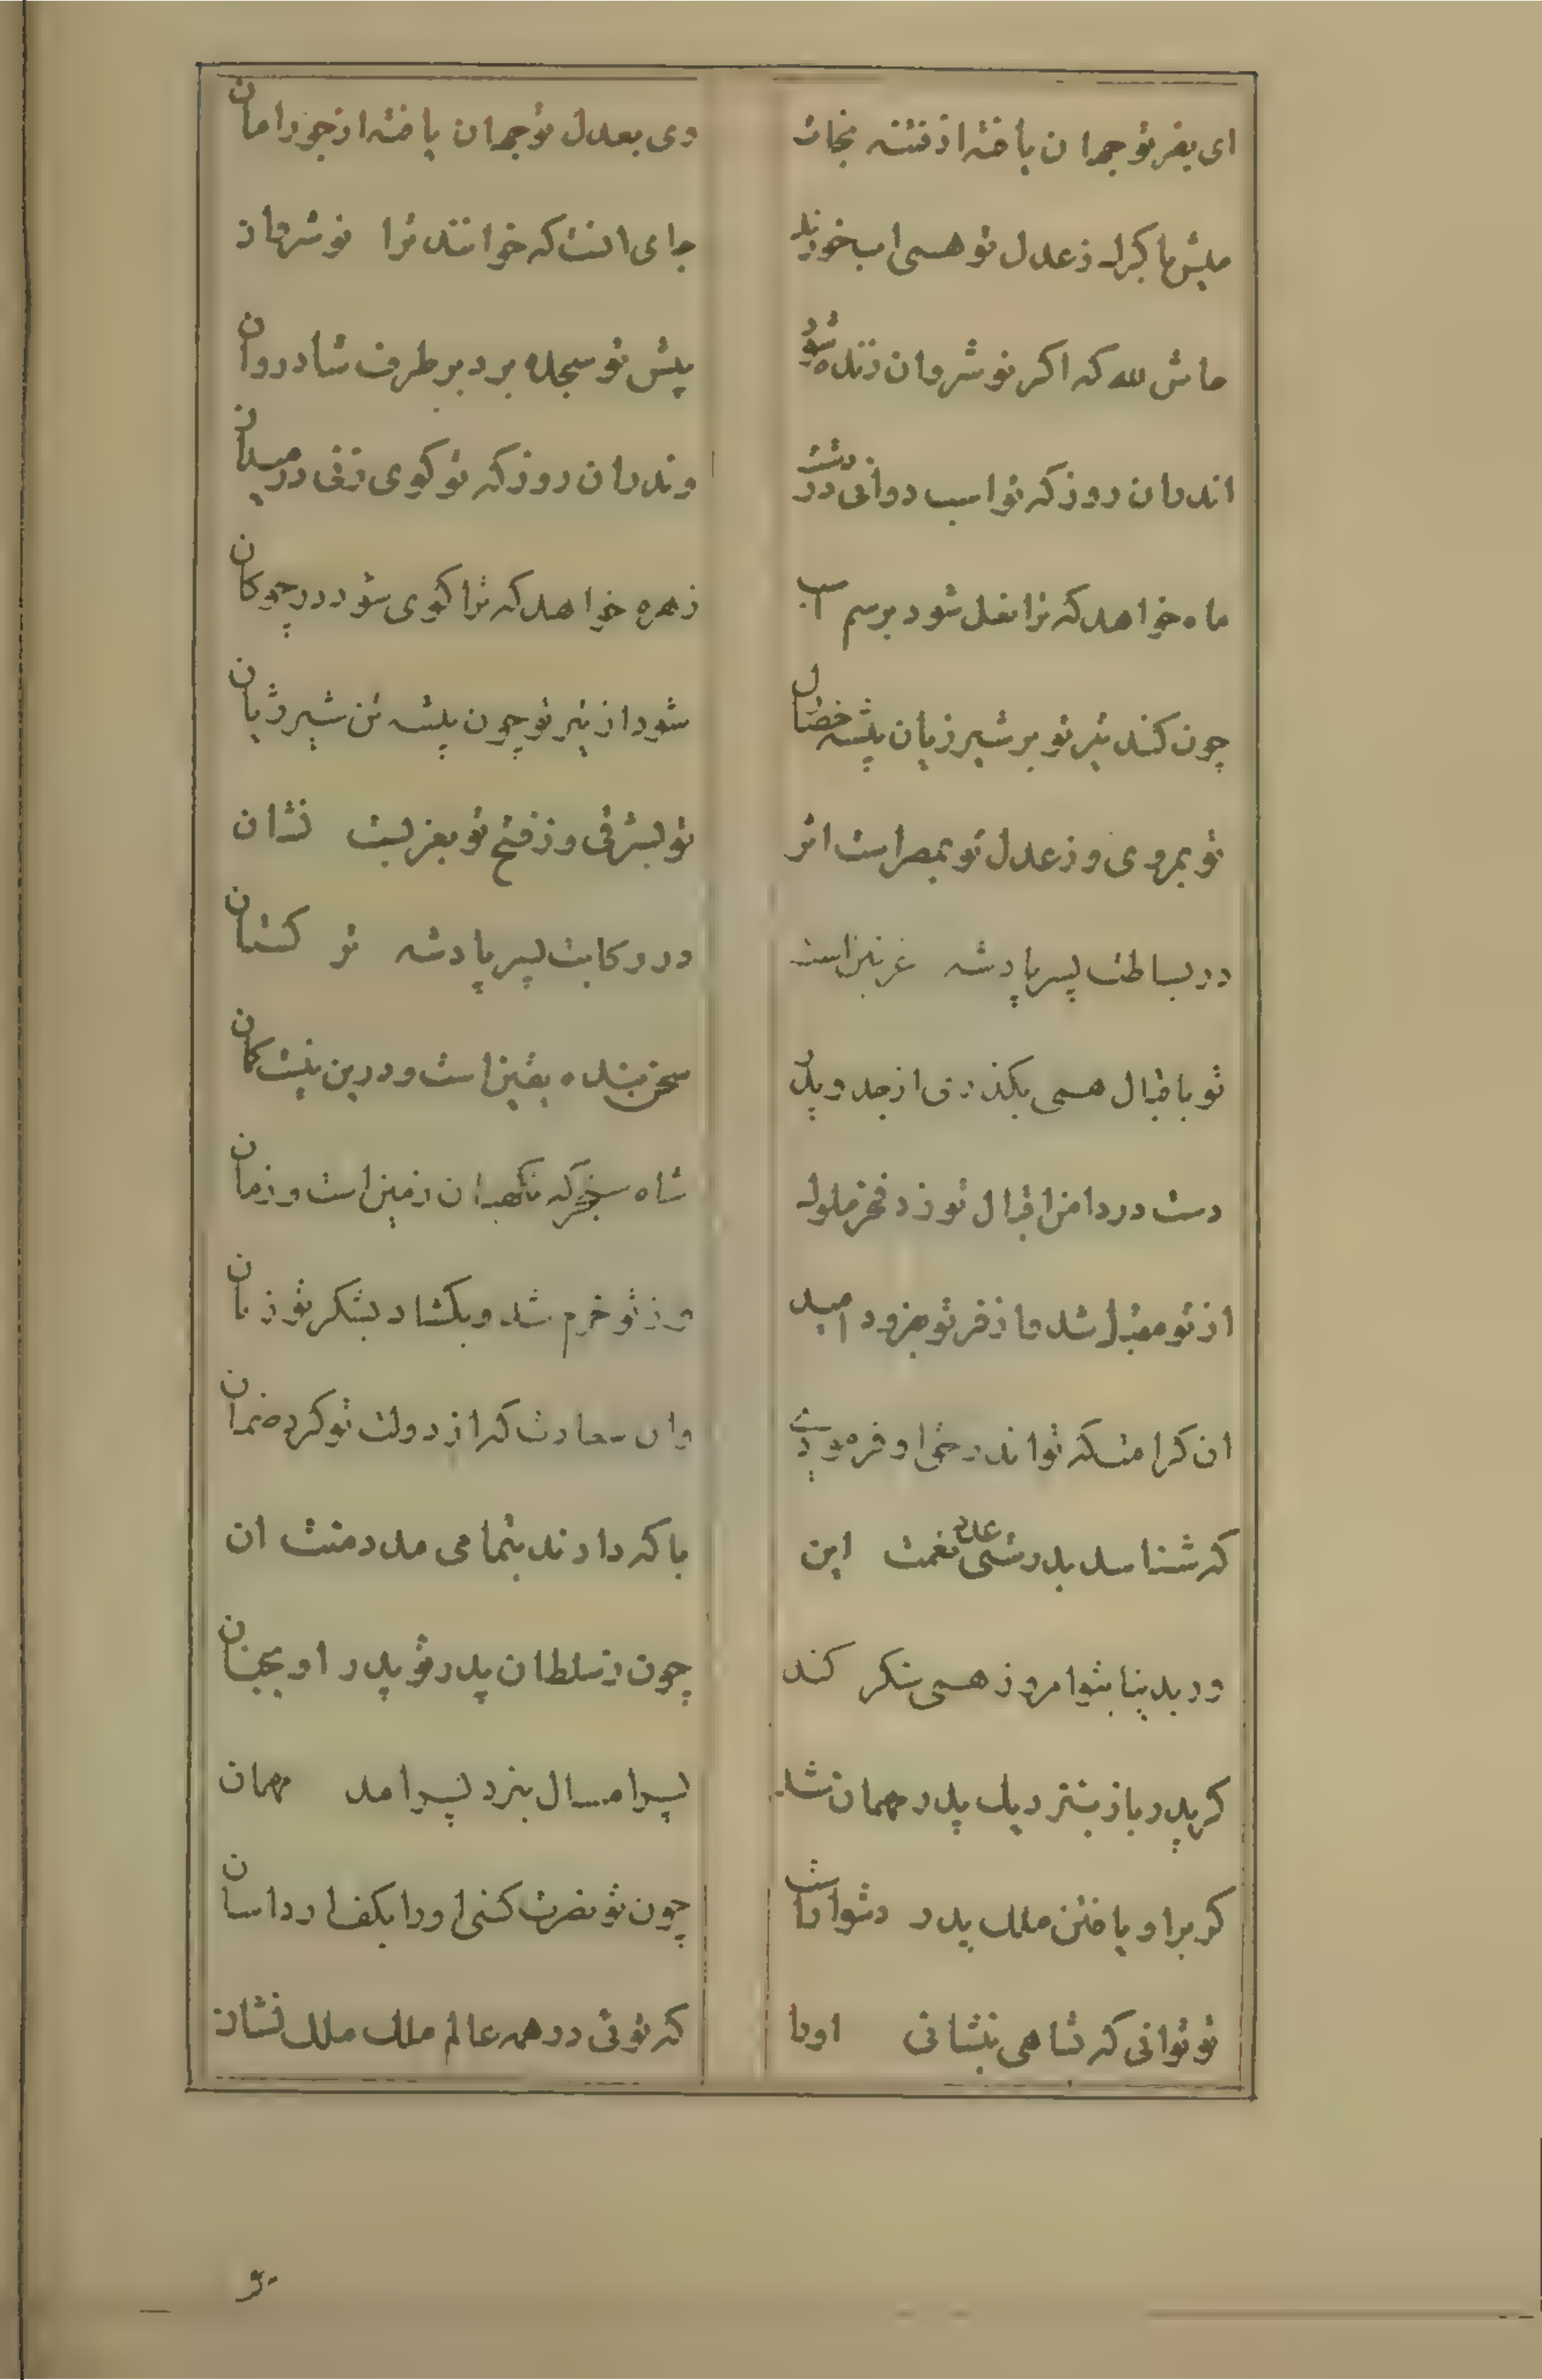 ای بفر تو جهان یافته از فتنه نجات
وی بعدل تو جهان یافته از جور امان
میش با کرک ز عدل تو همی اب خورند
جای انست که خوانند ترا نوشروان
حاش لله که اکر نوشروان زنده شود
پیش تو سجده برد بر طرف شادروان
اندران روز که تو اسب دوانی در دشت
وندران روز که تو کوی زنی در میدان
ماه خواهد که ترا نعل شود بر سم اسب
زهره خواهد که ترا کوی شود در چوکان
چون کند تیر تو بر شیر ژیان پیشه خصال
شود از تیر تو چون پیشه تن شیر ژیان
تو بمروی و ز عدل تو بمصر است اثر
تو بشرقی و ز فتح تو بغربیت نشان
در بساطت پسر پادشه غزنین است
در رکابت پسر پادشه تر کستان
تو باقبال همی بکذری از جد و پدر
سخن بنده یقین است و درین نیست کمان
دست در دامن اقبال تو زد فخر ملوک
شاه سنجر که نکهبان زمین است و زمان
از تو مقبل شد و از فر تو بفزود امید
وز تو خرم شد و بکشاد بشکر تو زبان
ان کرامت که تو اندر حق او فرمودی
وان سعادت که از دولت تو کرد ضمان
که شناسد بدرستی عدد نعمت این
یا که داند بتمامی مدد منت ان
ور بدینا بتو امروز همی شکر کند
چون ز سلطان پدر تو پدر او بجنان
کر پدر باز بنزدیک پدر مهمان شد
پسر امسال بنزد پسر امد مهمان
کر بر او یافتن ملک پدر دشوار است
چون تو نصرت کنی او را بکف ارد اسان
تو توانی که بشاهی بنشانی او را
که توئی در همه عالم ملک ملک نشان